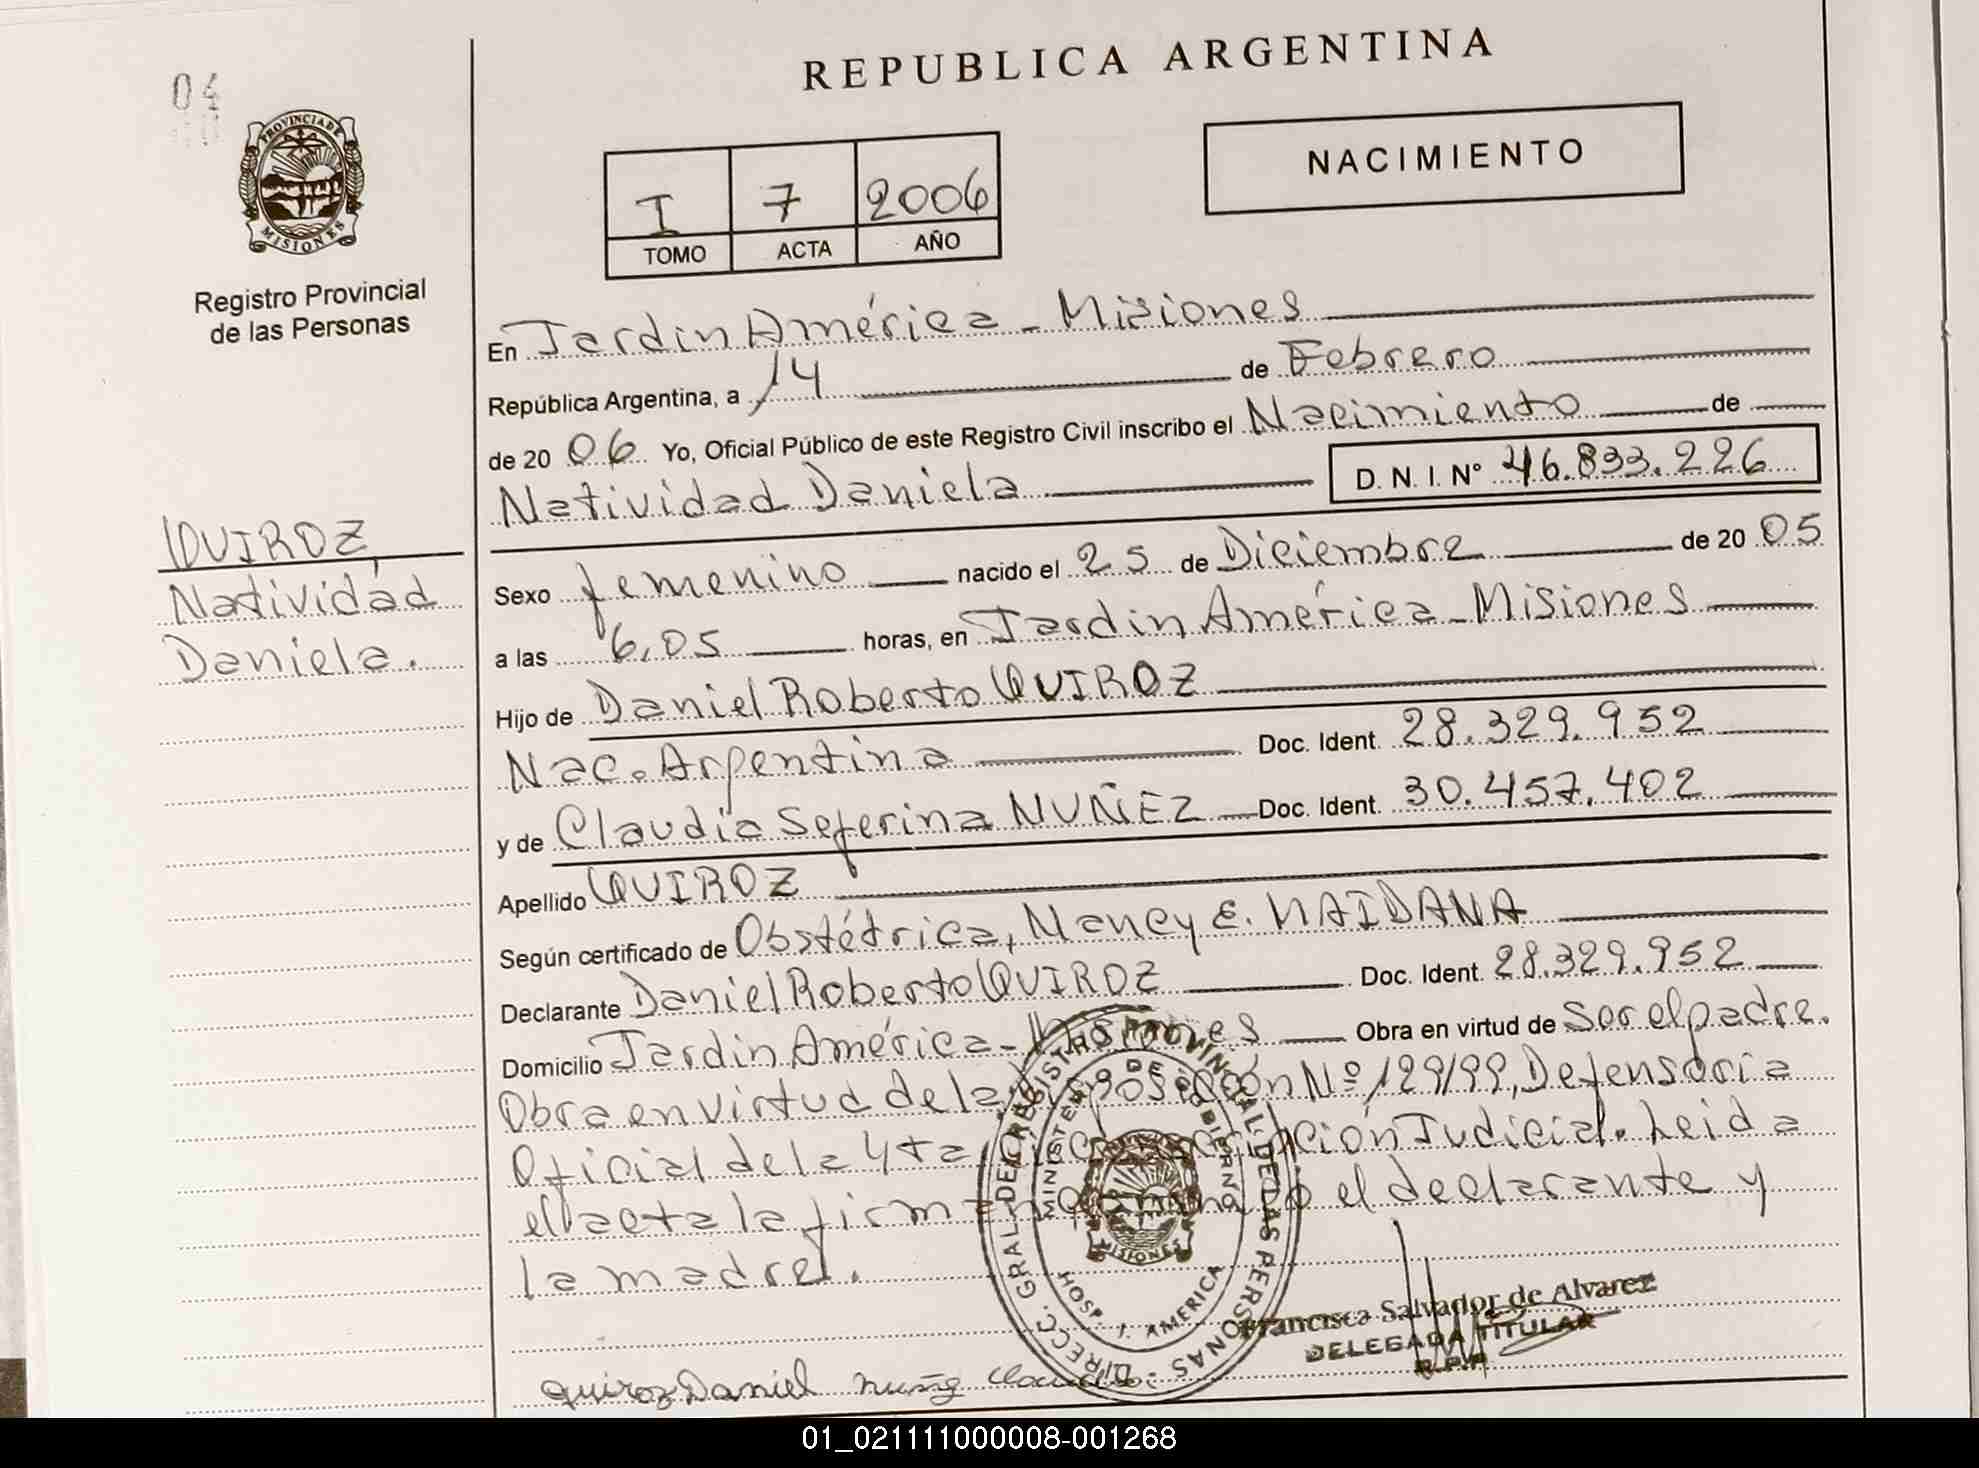 04
PROVINCIA DE
MISIONES
Registro Provincial
de las Personas
REPUBLICA ARGENTINA
I 7 2006
TOMO ACTA AÑO
NACIMIENTO
En Jardin América - Misiones
República Argentina, a 14 de Febrero
de 20 06 Yo, Oficial Público de este Registro Civil inscribo el Nacimiento de
Natividad Daniela D. N. I. N° 46.833.226
QUIROZ
Natividad
Daniela.
Sexo femenino nacido el 25 de Diciembre de 20 05
a las 6,05 horas, en Jardin América - Misiones
Hijo de Daniel Roberto QUIROZ
Nac. Argentina Doc. Ident. 28.329.952
y de Claudia Seferina NUÑEZ Doc. Ident. 30.457.402
Apellido QUIROZ
Según certificado de Obstétrica, Nancy E. MAIDANA
Declarante Daniel Roberto QUIROZ Doc. Ident. 28.329.952
Domicilio Jardin América - Misiones Obra en virtud de Ser el padre.
Obra en virtud de la Disposición Nº 129/99, Defensoria
Oficial de la 4ta Circunscripción Judicial. Leida
el acta la firman conmigo el declarante y
la madre.
DIRECC. GRAL. DEL REGISTRO PROVINCIAL DE LAS PERSONAS
MINISTERIO DE GOBIERNO
MISIONES
HOSP. J. AMERICA
Francisca Salvador de Alvarez
DELEGADA TITULAR
R.P.P.
quiroz Daniel nuñez Claudia
01_021111000008-001268